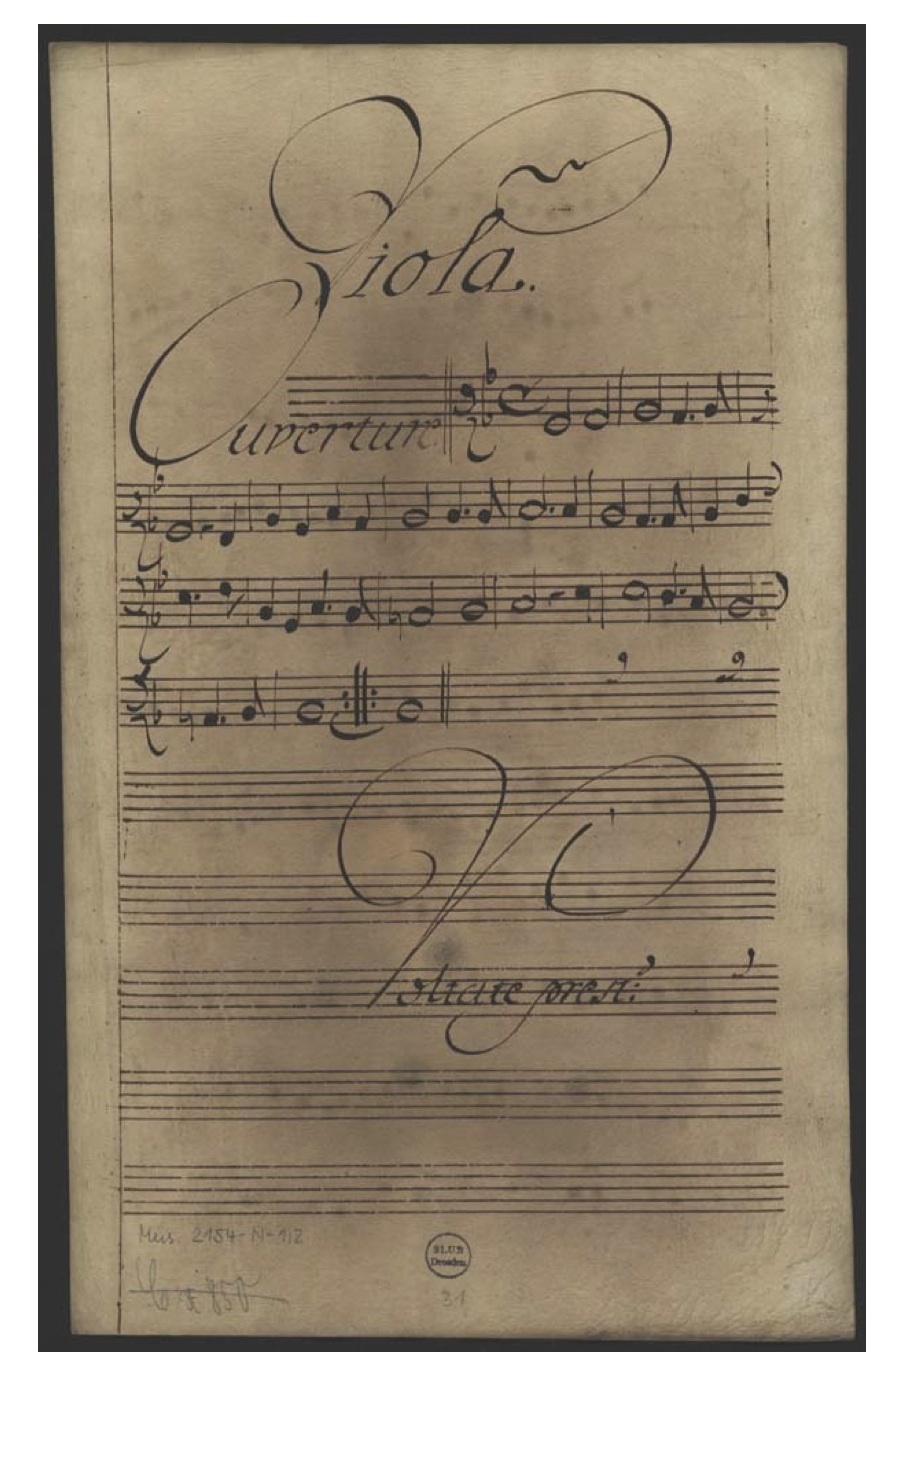 Viola.
Ouverture
Voltate prest:
Mus. 2154-N-1,2
SLUB
Dresden
31